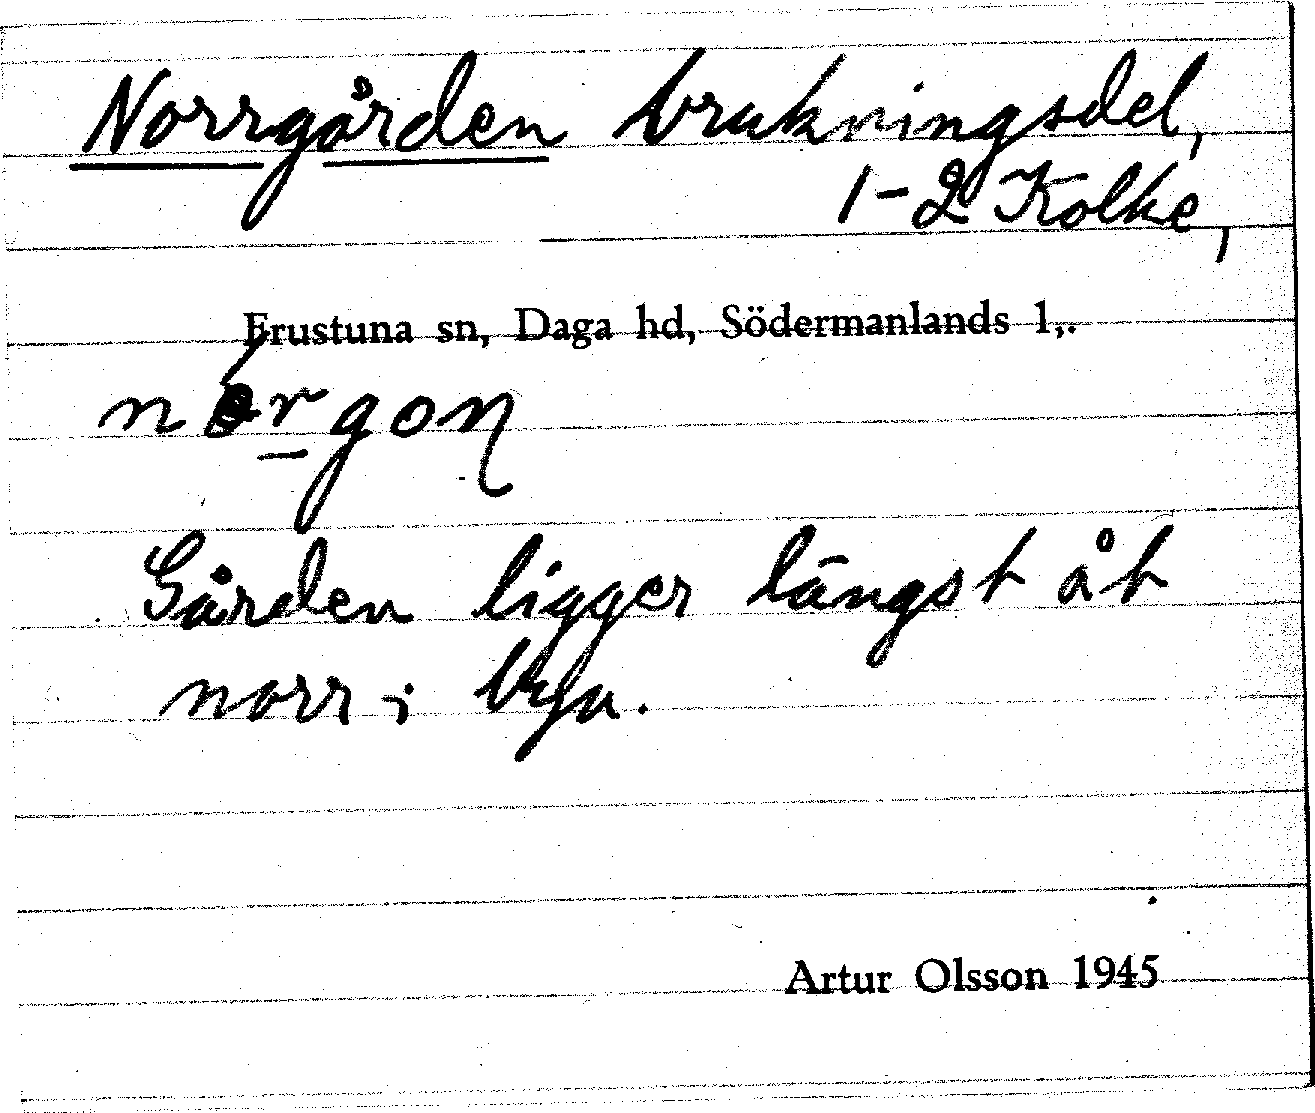 Norrgården brukningsdel,
1-2 Kolke,
Frustuna sn, Daga hd, Södermanlands l,.
Gården ligger längst åt
norr i byn.
Artur Olsson 1945